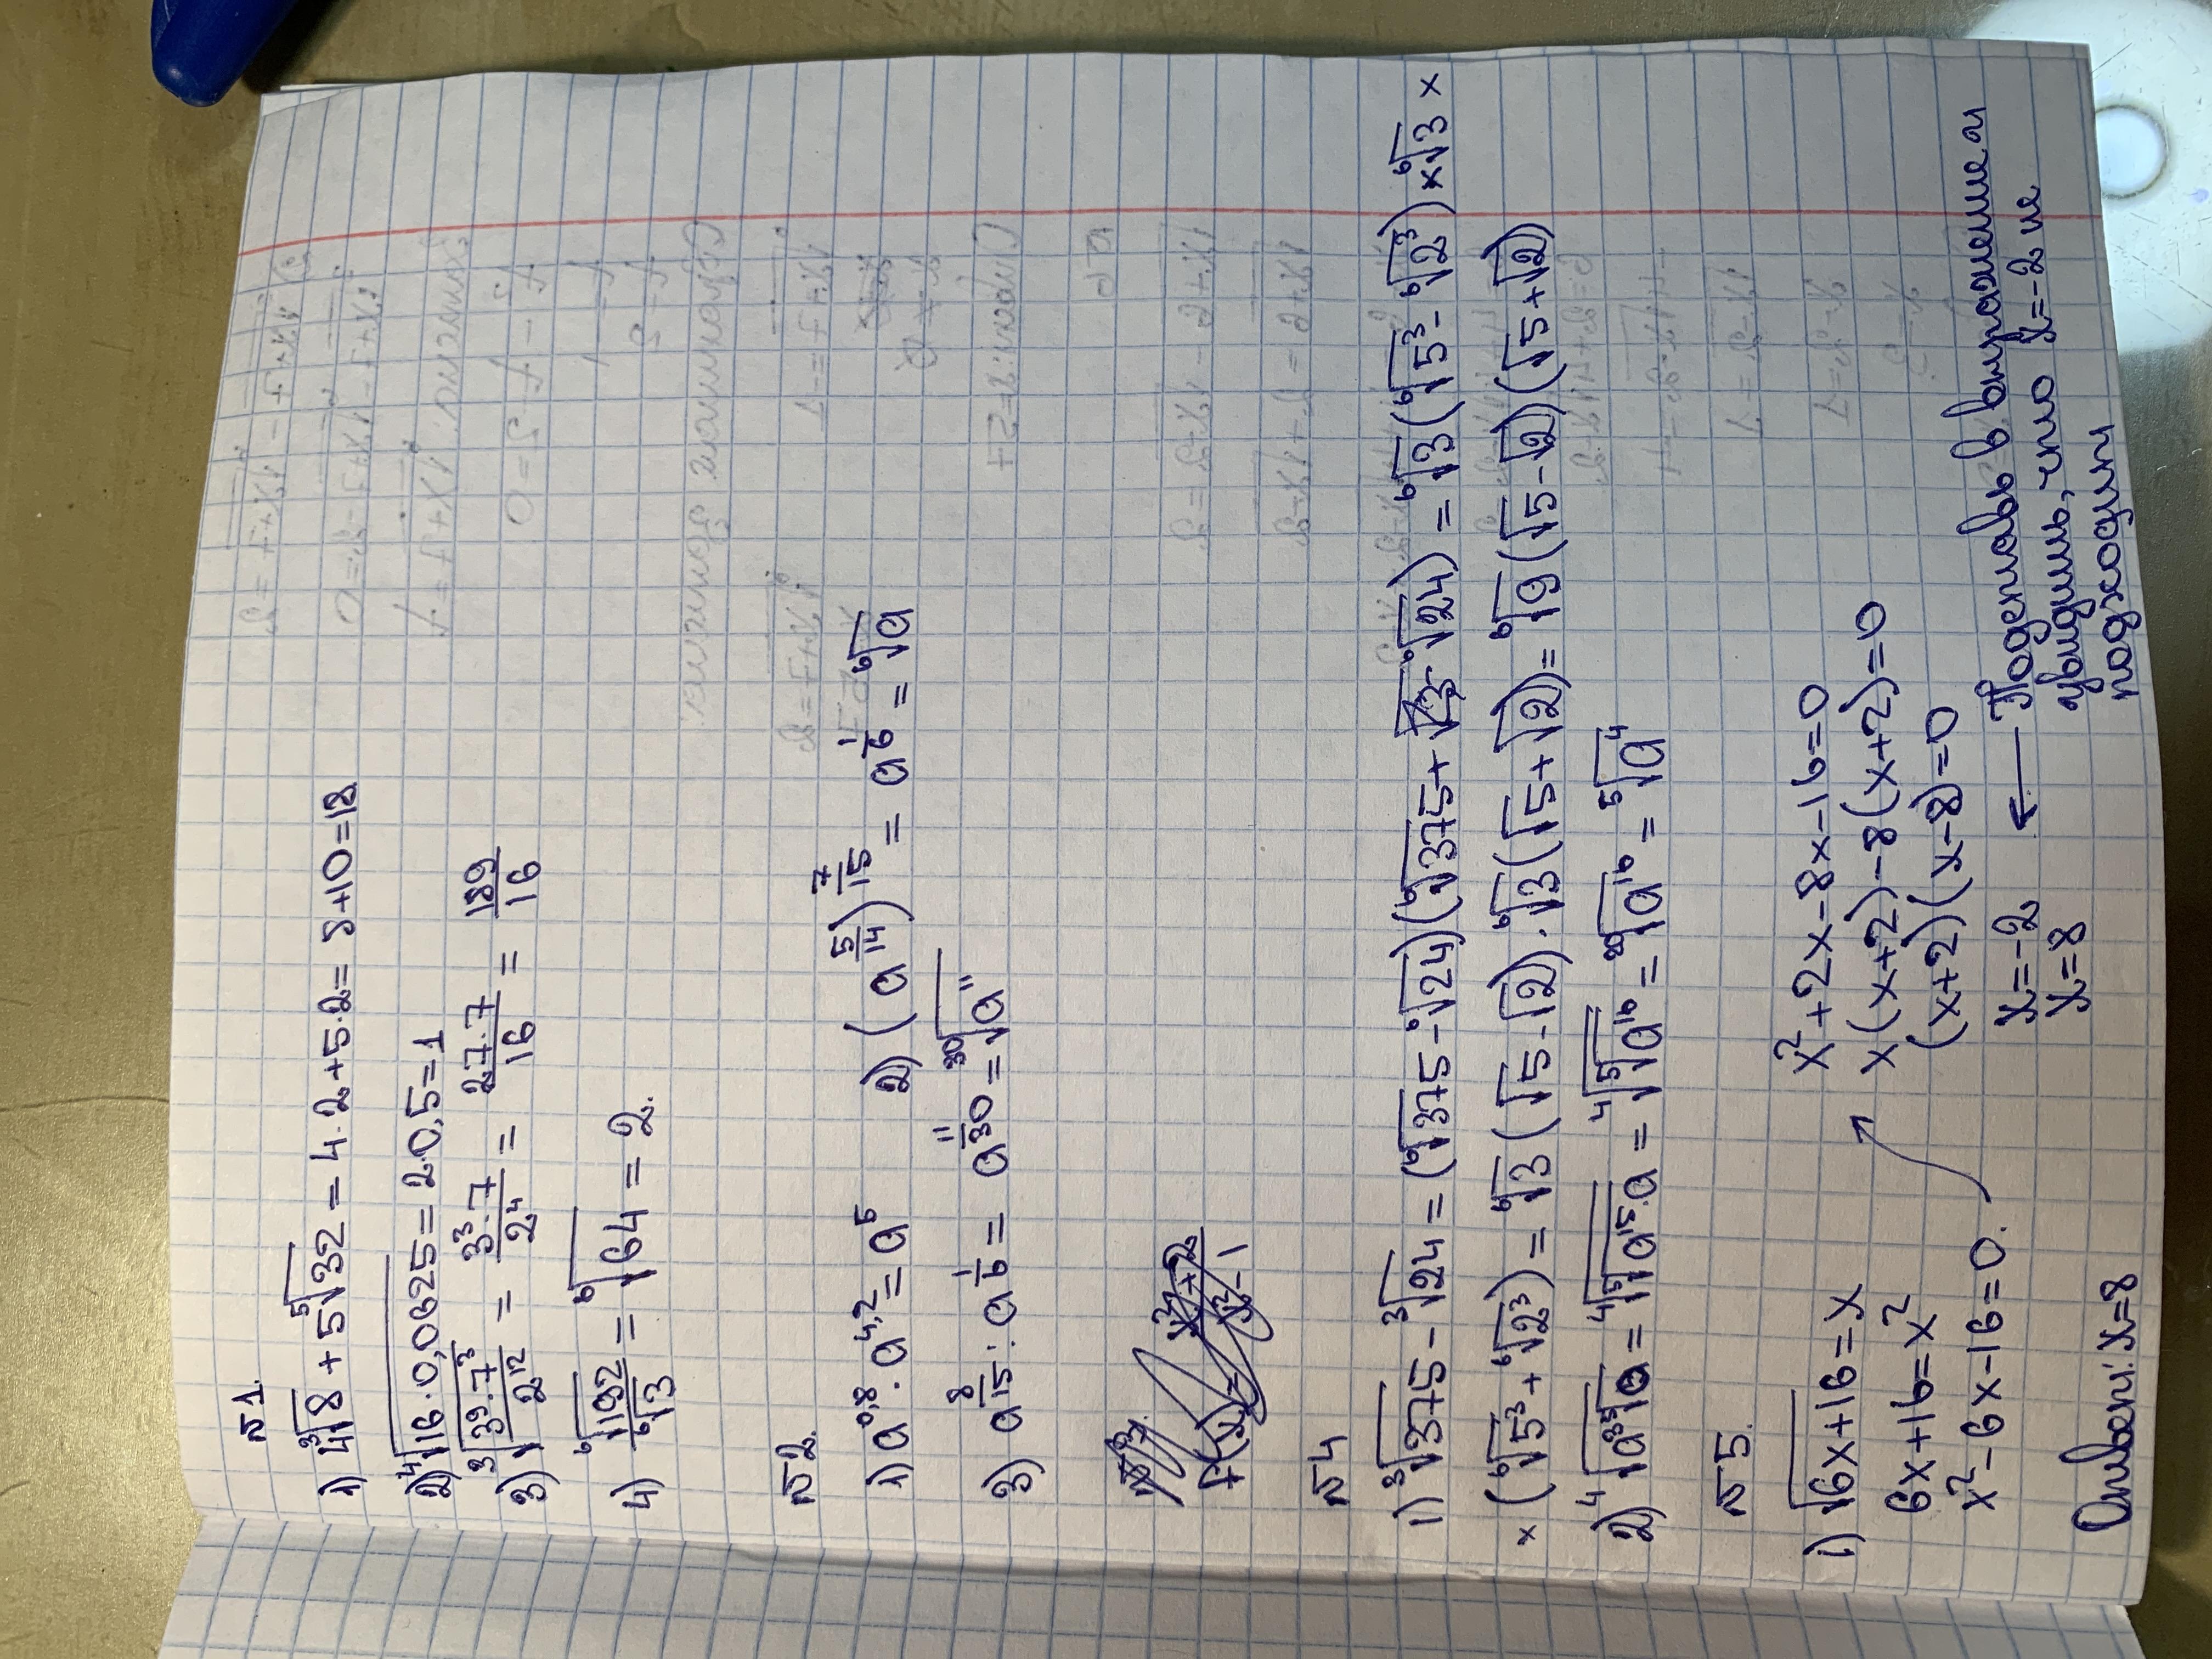 №1.
1) 4∛8 + 5⁵√32 = 4·2+5·2= 8+10=18
2) ⁴√(16·0,0625) = 2·0,5=1
3) ∛((3⁹·7³)/(2¹²)) = (3³·7)/(2⁴) = (27·7)/16 = 189/16
4) (⁶√192)/(⁶√3) = ⁶√64 = 2.
№2.
1) a^(0,8) · a^(4,2) = a⁵ 2) (a^(5/14))^(7/15) = a^(1/6) = ⁶√a
3) a^(8/15) : a^(1/6) = a^(11/30) = ³⁰√(a¹¹)
№4
1) ∛375 - ∛24 = (⁶√375 - ⁶√24)(⁶√375 + ⁶√24) = ⁶√3(⁶√5³ - ⁶√2³) × ⁶√3 ×
× (⁶√5³ + ⁶√2³) = ⁶√3 (√5-√2) · ⁶√3(√5+√2) = ⁶√9 (√5-√2)(√5+√2)
2) ⁴√(a³ ⁵√a) = ⁴√(⁵√(a¹⁵·a)) = ⁴√(⁵√(a¹⁶)) = ²⁰√(a¹⁶) = ⁵√(a⁴)
№5.
1) √(6x+16) = x
6x+16=x²
x²-6x-16=0.
x²+2x-8x-16=0
x(x+2)-8(x+2)=0
(x+2)(x-8)=0
x=-2
x=8
← Подставив в выражение и
увидим, что x=-2 не
подходит
Ответ: x=8